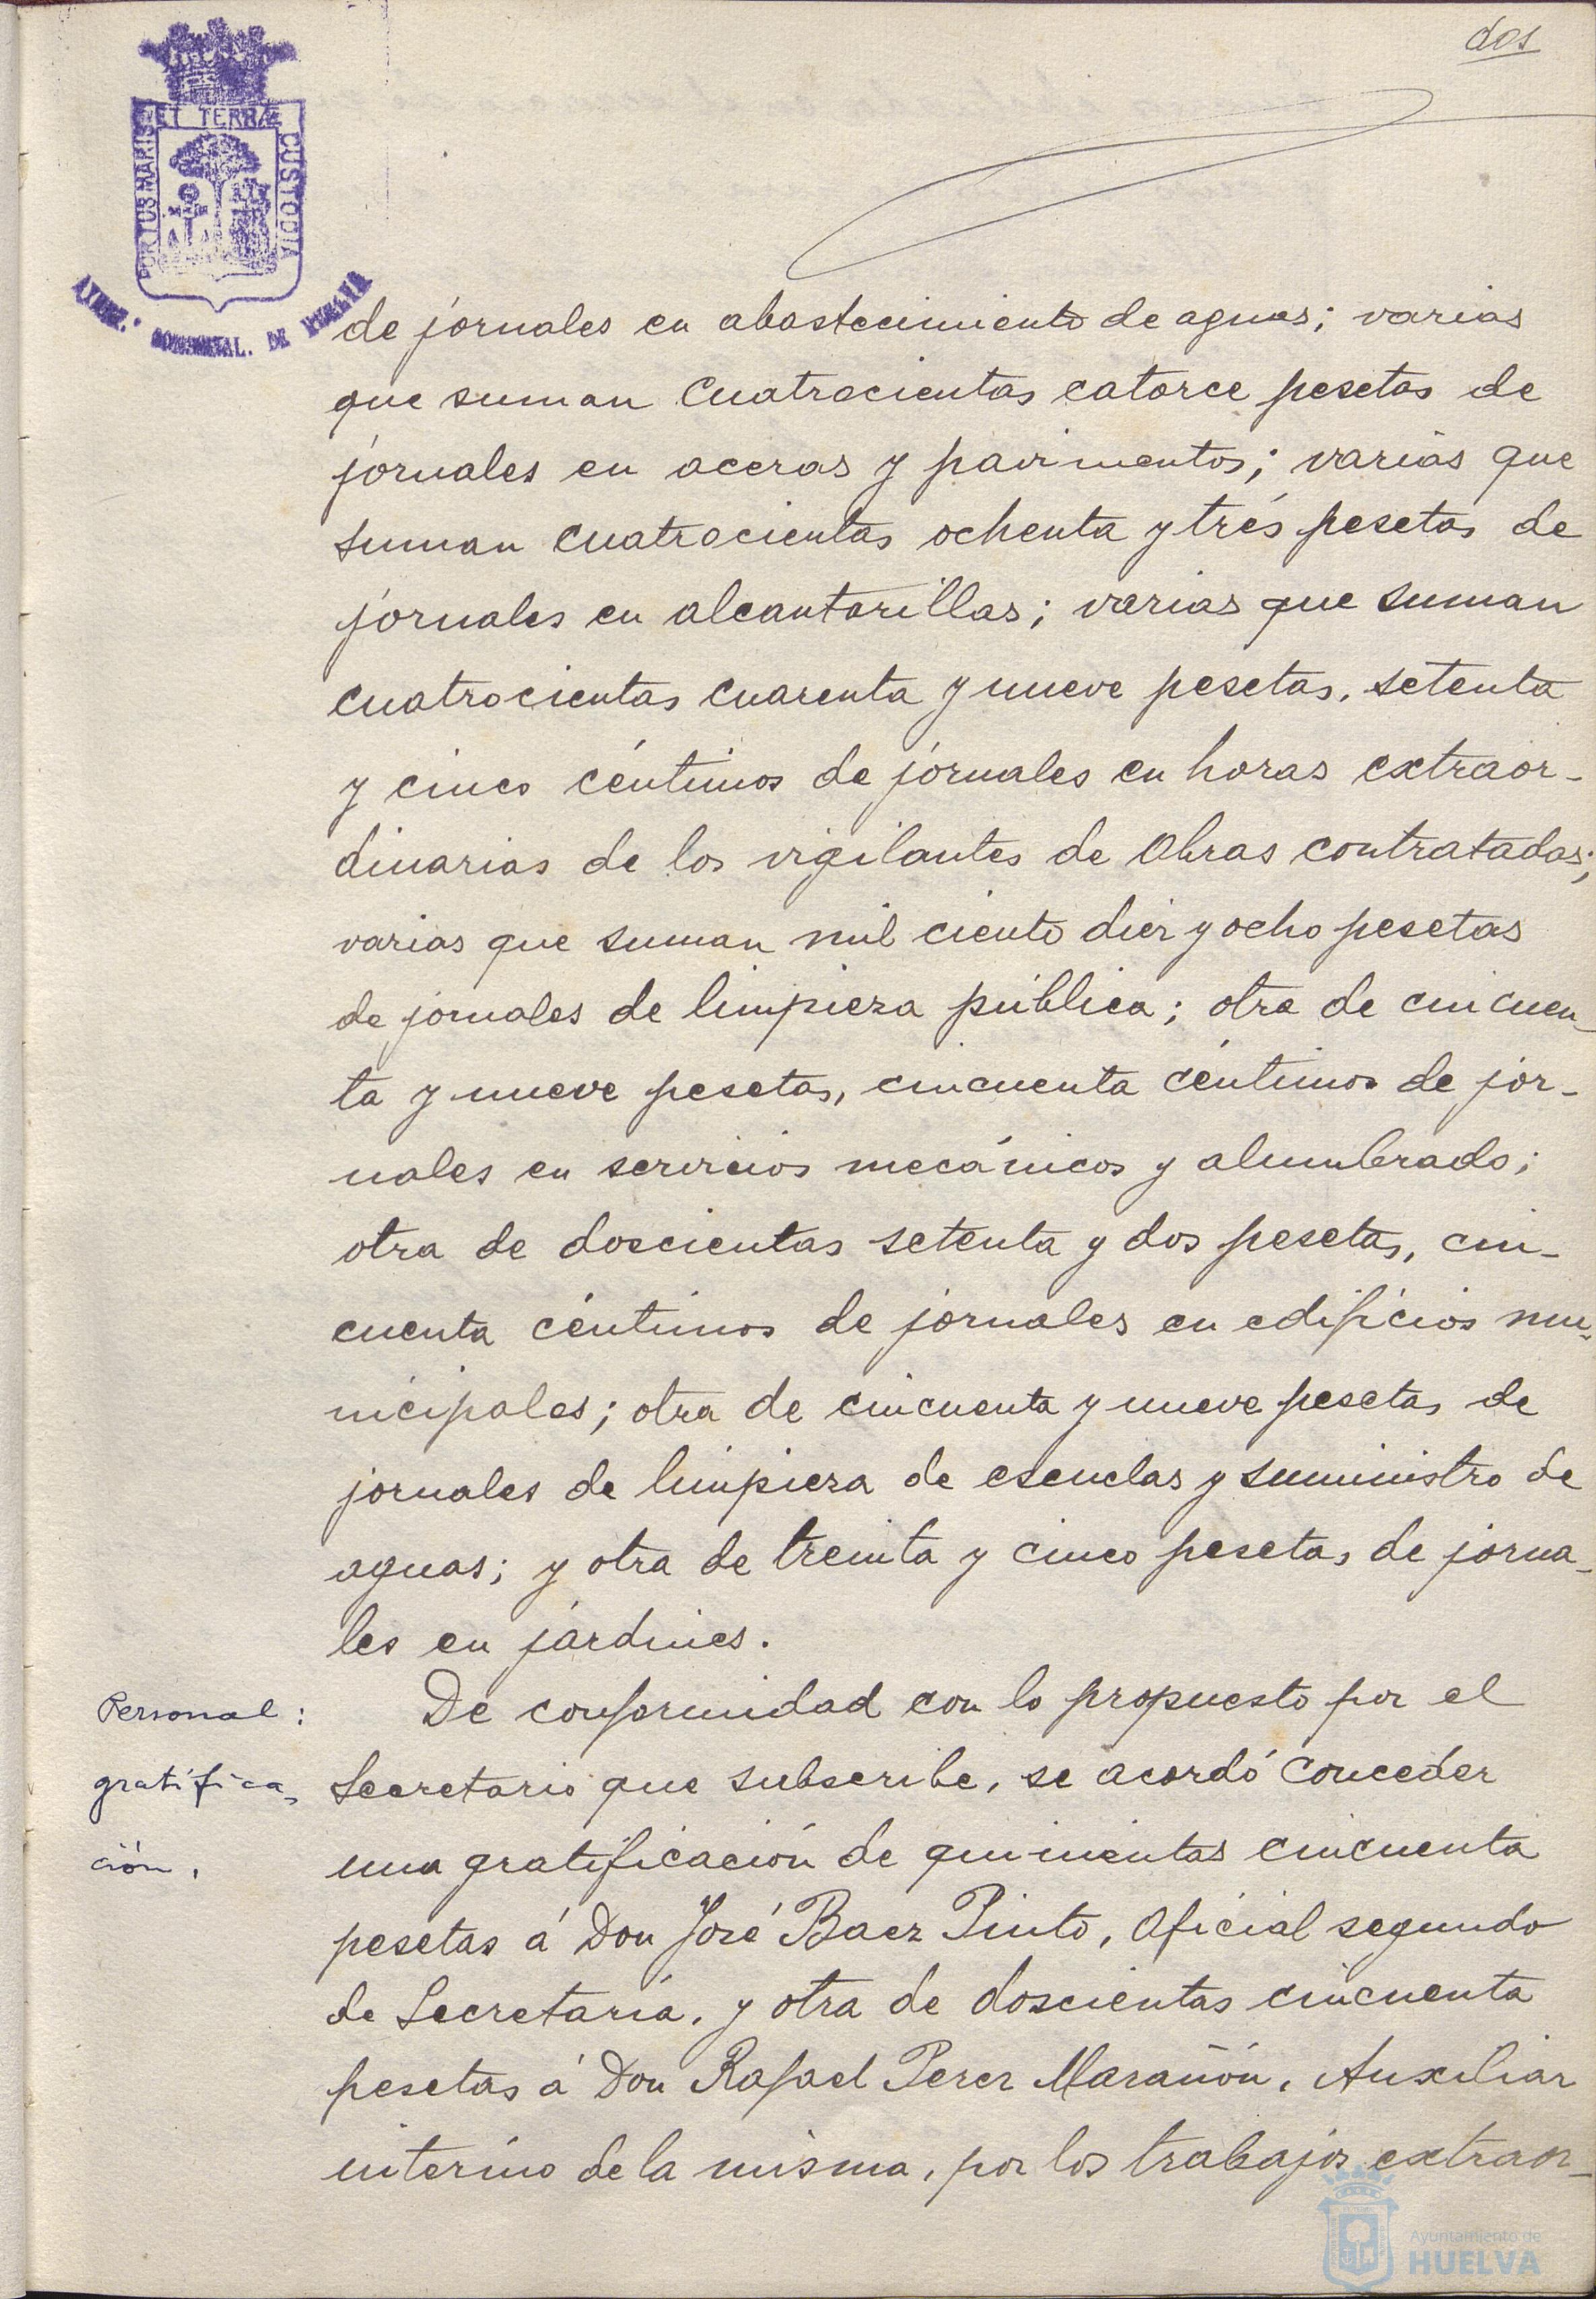 dos
PORTUS MARIS ET TERRÆ CUSTODIA
DE HUELVA
de jornales en abastecimiento de aguas; varias
que suman cuatrocientas catorce pesetas de
jornales en aceras y pavimentos; varias que
suman cuatrocientas ochenta y trés pesetas de
jornales en alcantarillas; varias que suman
cuatrocientas cuarenta y nueve pesetas, setenta
y cinco céntimos de jornales en horas extraor-
dinarias de los vigilantes de obras contratadas;
varias que suman mil ciento diez y ocho pesetas
de jornales de limpieza pública; otra de cincuen-
ta y nueve pesetas, cincuenta céntimos de jor-
nales en servicios mecánicos y alumbrado;
otra de doscientas setenta y dos pesetas, cin-
cuenta céntimos de jornales en edificios mu-
nicipales; otra de cincuenta y nueve pesetas de
jornales de limpieza de escuelas y suministro de
aguas; y otra de treinta y cinco pesetas de jorna-
les en jardines.
Personal:
gratifica-
ción.
De conformidad con lo propuesto por el
Secretario que subscribe, se acordó conceder
una gratificación de quinientas cincuenta
pesetas á Don José Baez Pinto, Oficial segundo
de Secretaría, y otra de doscientas cincuenta
pesetas á Don Rafael Perez Marañón, Auxiliar
interino de la misma, por los trabajos extraor-
Ayuntamiento de
HUELVA